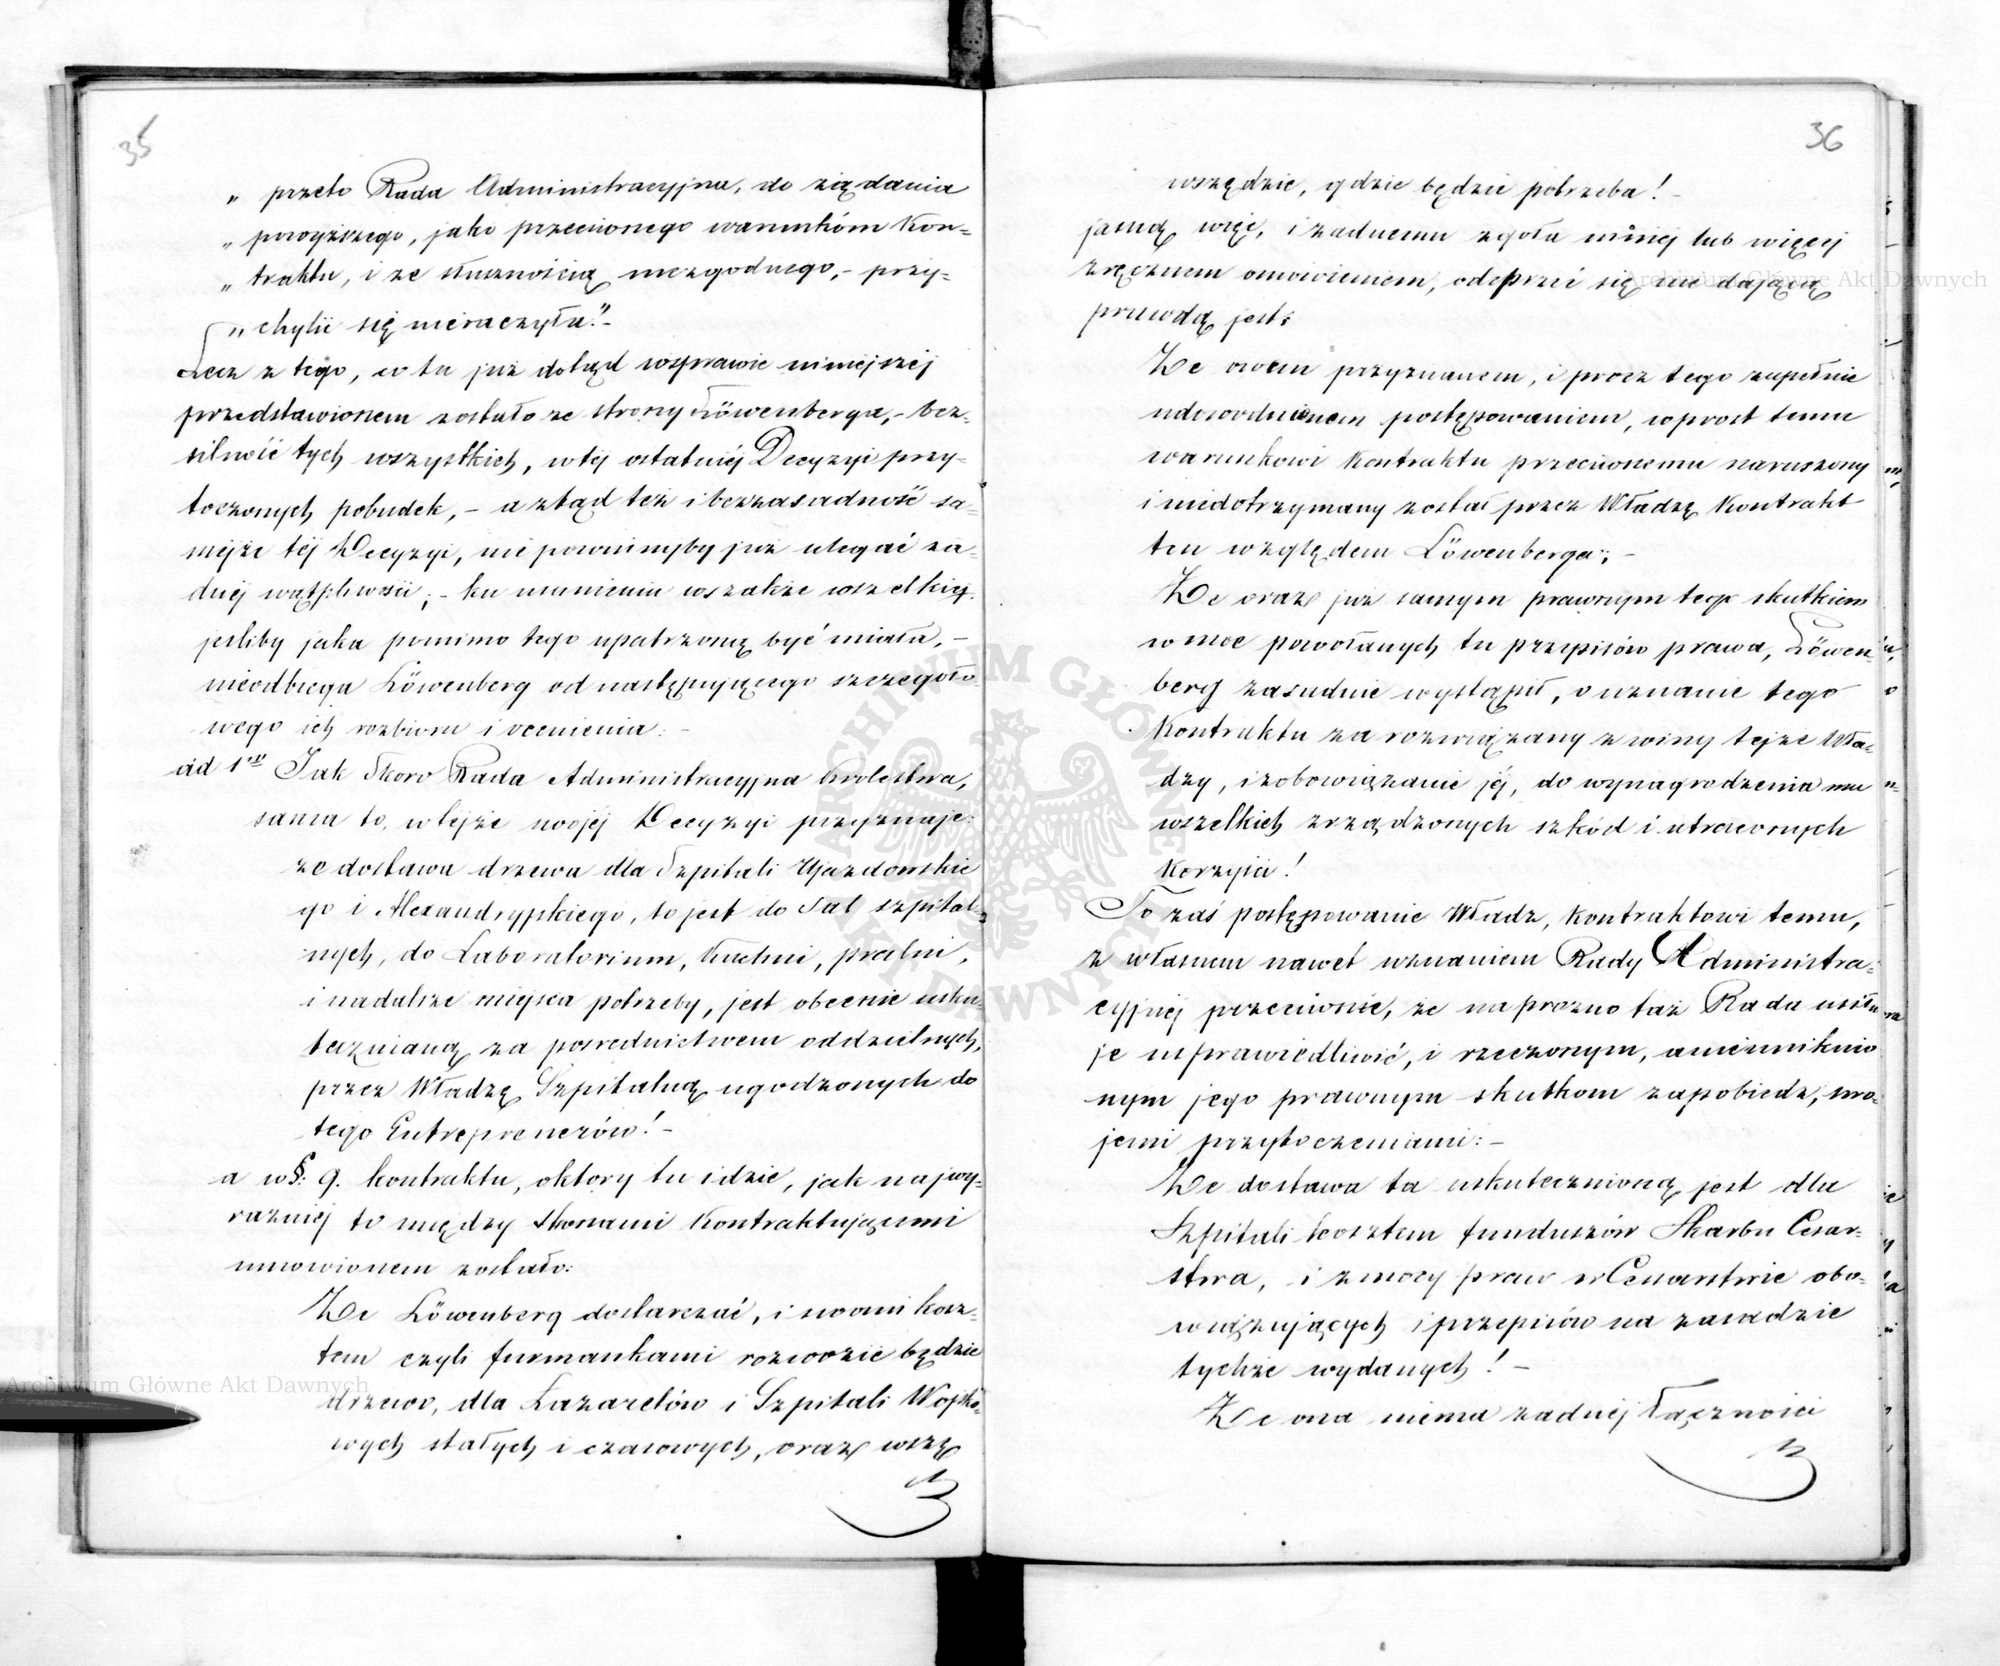 35
„ przeto Rada Administracyjna, do żądania
„ powyższego, jako przeciwnego warunkom Kon-
„ traktu, i ze słusznością niezgodnego, - przy-
„ chylić się nieraczyła." -
Lecz z tego, co tu już dotąd wsprawie niniejszej
przedstawionem zostało ze strony Löwenberga, - bez-
silność tych wszystkich, wtéj ostatniéj Decyzyi przy-
toczonych pobudek, - a ztąd też i bezzasadność sa-
mejże téj Decyzyi, nie powinnyby już ulegać ża-
dnéj wątpliwości; - ku wszakże wszelkiéj
jeśliby jaka pomimo tego upatrzoną być miała, -
nieodbiega Löwenberg od następującego szczegóło-
wego ich rozbioru i ocenienia: -
ad 1m Jak skoro Rada Administracyjna Królestwa,
sama to, wtejże swojéj Decyzyi przyznaje:
że dostawa drzewa dla Szpitali Ujazdowskie
go i Alexandryjskiego, to jest do Sal szpital-
nych, do Laboratorium, Kuchni, pralni,
i nadalsze miejsca potrzeby, jest obecnie usku-
tecznianą za pośrednictwem oddzielnych,
przez Władzę Szpitalną ugodzonych do
tego Entreprenerów! -
a w §: 9. kontraktu, o który tu idzie, jak najwy-
raźniéj to między Stronami Kontraktującemi
umowionem zostało:
Że Löwenberg dostarczać, i swoim kosz-
tem czyli furmankami rozwozić będzie
drzewo, dla Lazaretów i Szpitali Wojsko-
wych stałych i czasowych, oraz wszę
36
wszędzie, gdzie będzie potrzeba! -
jasną więc, i żadnemu zgoła mniéj lub więcéj
zręcznem omówieniem, odeprzeć się nie dającą
prawdą jest:
Że owem przyznanem, i prócz tego zupełnie
udowodnionem postępowaniem, wprost temu
warunkowi Kontraktu przeciwnemu naruszony
i niedotrzymany został przez Władzę Kontrakt
ten względem Löwenberga; -
Że oraz już samym prawnym tego skutkiem
w moc powołanych tu przepisów prawa, Löwen-
berg zasadnie wystąpił, o uznanie tego
Kontraktu za rozwiązany z winy tejże Wła-
dzy, i zobowiązanie jéj, do wynagrodzenia mu
wszelkich zrządzonych szkód i utraconych
Korzyści!
To zaś postępowanie Władz, Kontraktowi temu,
z własnem nawet uznaniem Rady Administra-
cyjnéj przeciwne, że na prozno taż Rada usiłu
je usprawiedliwić, i rzeczonym, a nieuniknio
nym jego prawnym skutkom zapobiedz, swo-
jemi przytoczeniami: -
Że dostawa ta uskutecznioną jest dla
Szpitali kosztem funduszów Skarbu Cesar-
stwa, i z mocy praw w Cesarstwie obo-
wiązujących i przepisów na zasadzie
tychże wydanych! -
Że ona niema żadnéj łączności
Archiwum Główne Akt Dawnych
Archiwum Główne Akt Dawnych
ARCHIWUM GŁÓWNE AKT DAWNYCH